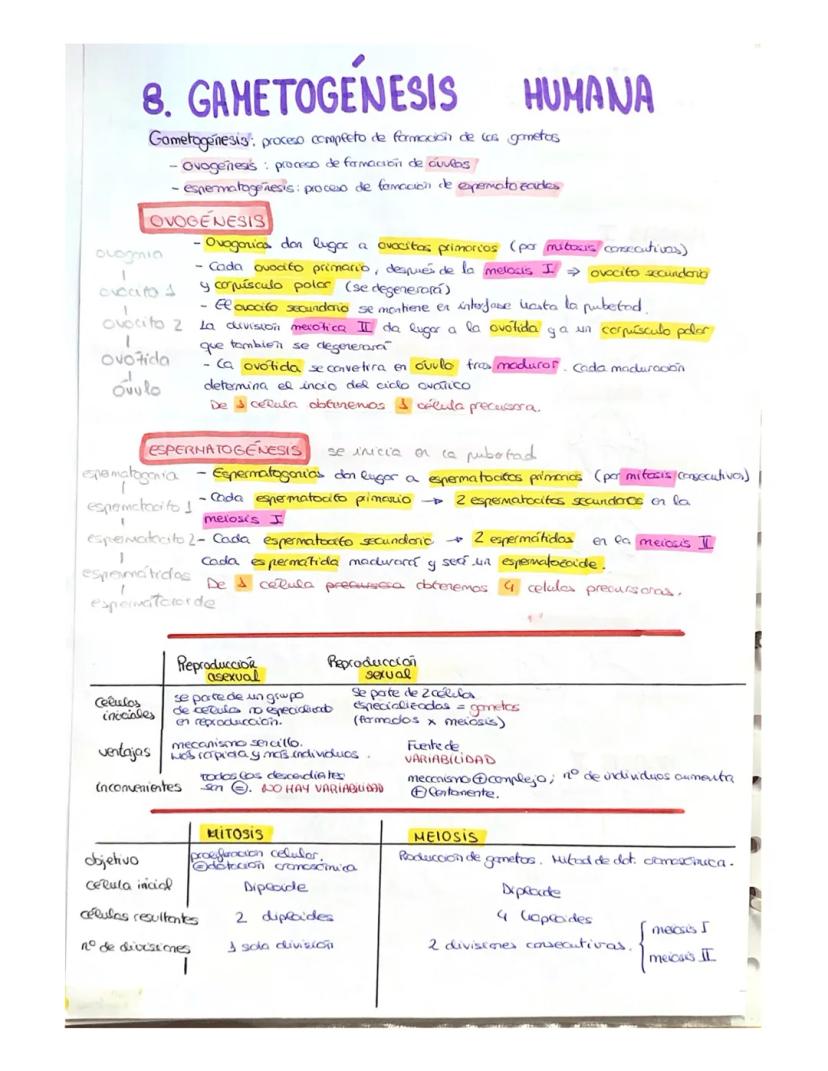 8. GAMETOGÉNESIS HUMANA
Gametogénesis: proceso completo de formación de los gametos
- ovogénesis : proceso de formación de óvulos
- espermatogénesis: proceso de formación de espermatozoides
OVOGÉNESIS
ovogonia
ovocito 1
ovocito 2
ovótida
óvulo
- Ovogonias dan lugar a ovocitos primarios (por mitosis consecutivas)
- Cada ovocito primario, después de la meiosis I ⇒ ovocito secundario
y corpúsculo polar (se degenerará)
- El ovocito secundario se mantiene en interfase hasta la pubertad.
La división meiótica II da lugar a la ovótida y a un corpúsculo polar
que también se degenerará
- La ovótida se convetira en óvulo tras madurar. Cada maduración
determina el incio del ciclo ovárico
De 1 célula obtenemos 1 célula precursora.
ESPERMATOGÉNESIS se inicia en la pubertad
espermatogonia
espermatocito 1
espermatocito 2
espermátidas
espermatozoide
- Espermatogonias dan lugar a espermatocitos primarios (por mitosis consecutivas)
- Cada espermatocito primario → 2 espermatocitos secundarios en la
meiosis I
- Cada espermatocito secundario → 2 espermátidas en la meiosis II
Cada espermátida madurará y será un espermatozoide.
De 1 célula precursora obtenemos 4 celulas precursoras.
Reproducción asexual
Reproducción sexual
Celulas iniciales
se parte de un grupo
de celulas no especializado
en reproducción.
Se parte de 2 células
especializadas = gametos
(formados x meiosis)
ventajas
mecanismo sencillo.
Más rápida y más individuos.
Fuente de
VARIABILIDAD
inconvenientes
todos los descendientes
son =. NO HAY VARIABILIDAD
mecanismo + complejo; nº de individuos aumenta
+ lentamente.
MITOSIS
MEIOSIS
objetivo
proliferación celular.
= dotación cromosómica
Producción de gametos. Mitad de dot. cromosómica.
celula inicial
Diploide
Diploide
células resultantes
2 diploides
4 haploides
nº de divisiones
1 sola división
2 divisiones consecutivas.
meiosis I
meiosis II